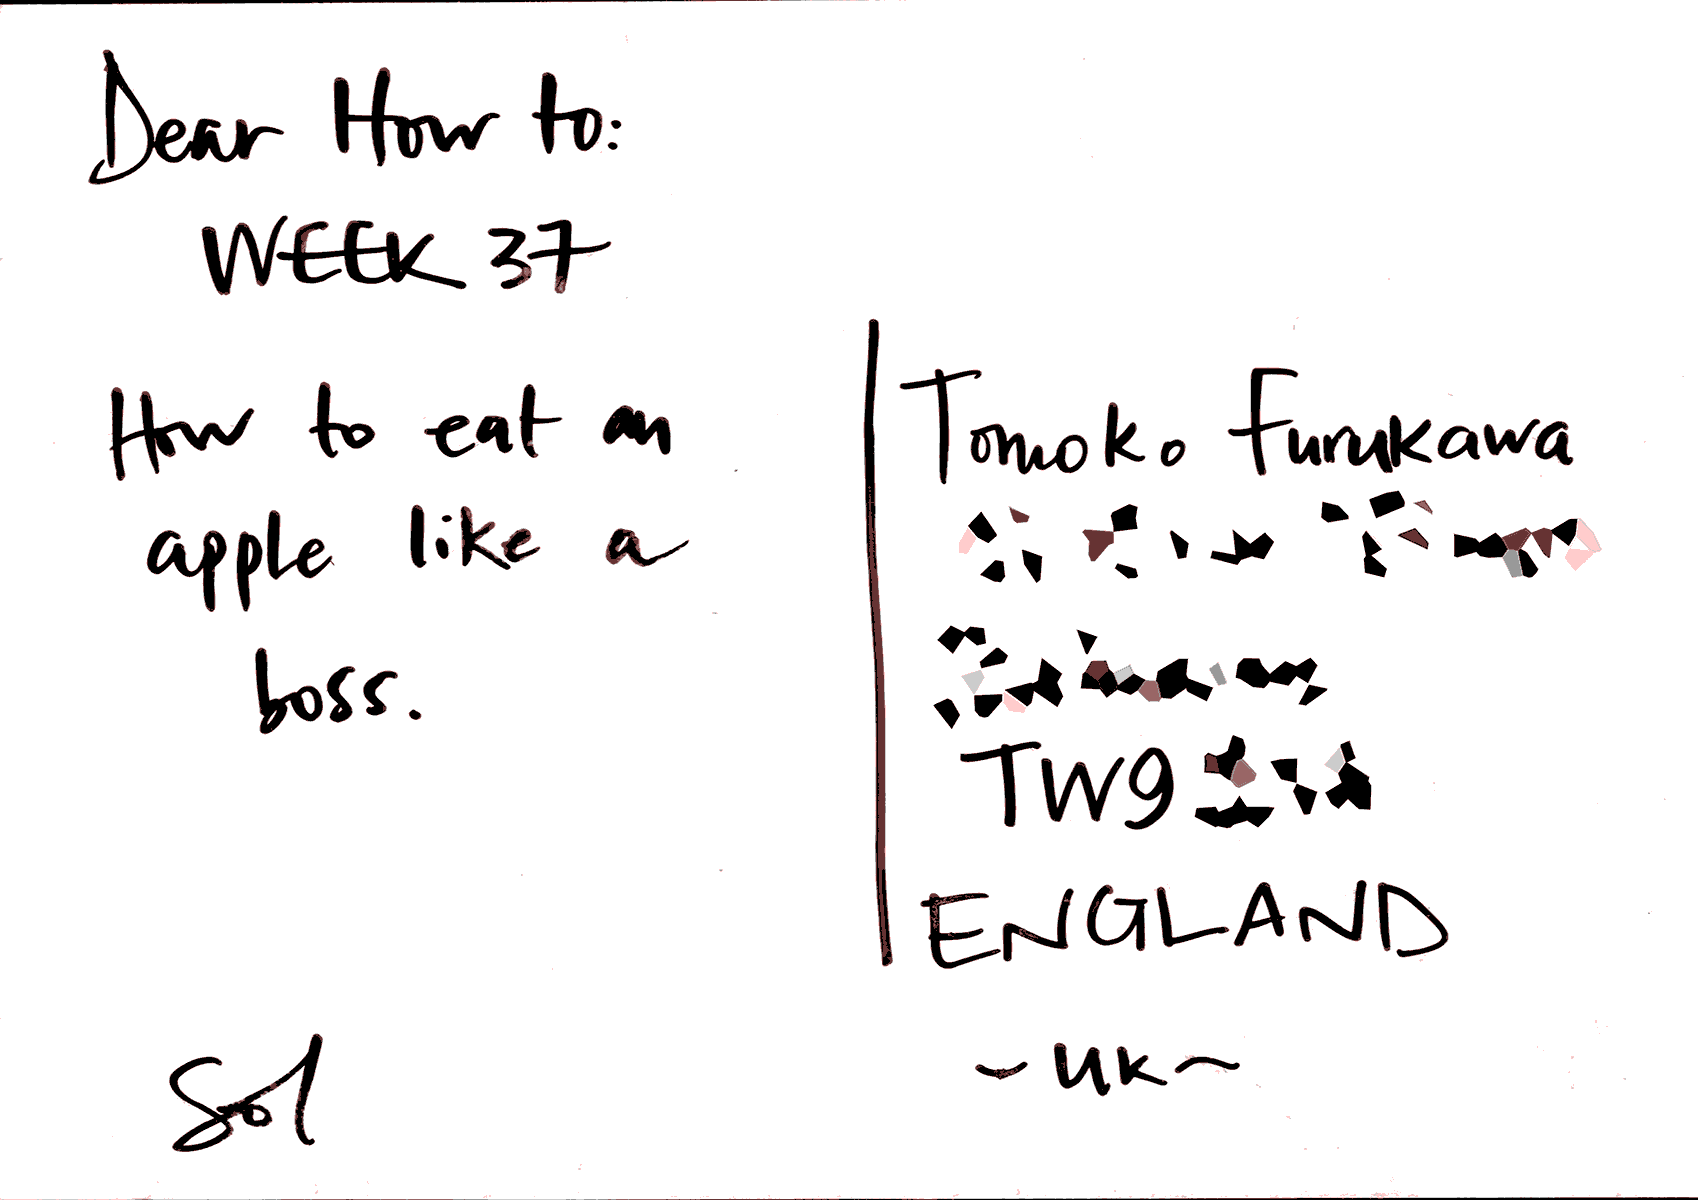 Dear How to:
WEEK 37
How to eat an
apple like a
boss.
Sol
Tomoko Furukawa
TW9
ENGLAND
~ UK ~